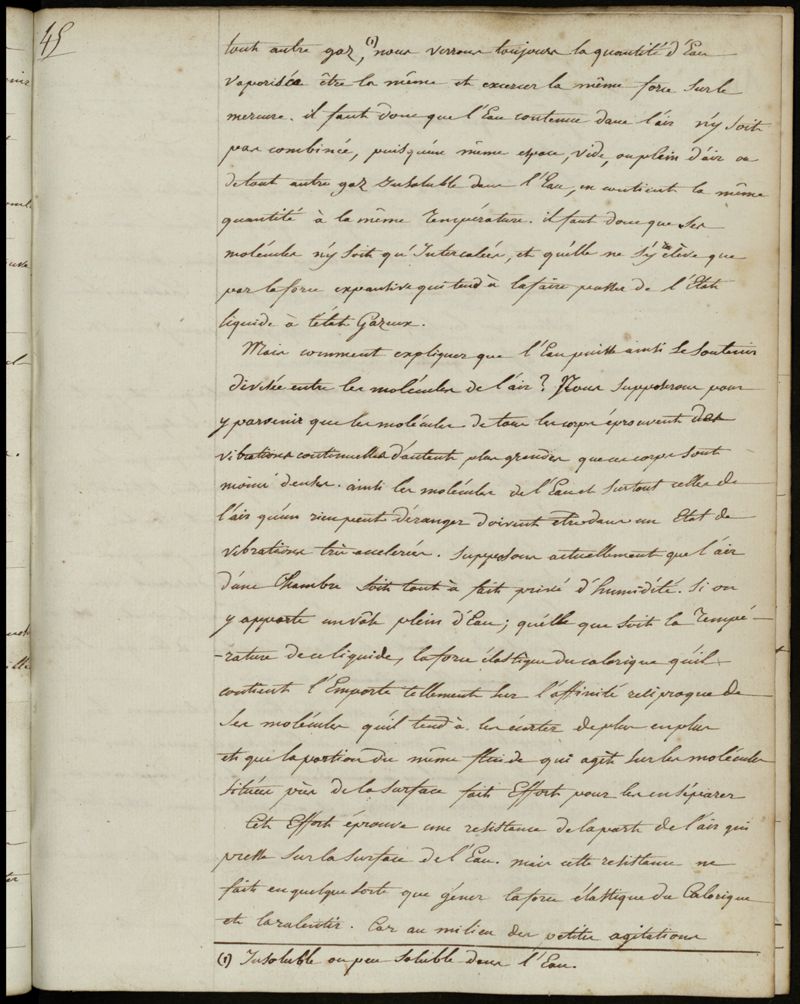 45
tout autre gaz, (1) nous verrons toujours la quantité d'Eau
vaporisée être la même et exercer la même force sur le
mercure. il faut donc que l'Eau contenue dans l'air n'y soit
pas combinée, puisqu'un même espace, vide, ou plein d'air ou
de tout autre gaz Insoluble dans l'Eau, en contient la même
quantité à la même Température. il faut donc que ses
molécules n'y soit qu'Intercalées, et qu'elle ne s'y élève que
par la force expansive qui tend à la faire passer de l'Etat
liquide à l'état Gazeux.
Mais comment expliquer que l'Eau puisse ainsi se soutenir
divisée entre les molécules de l'air? Nous supposerons pour
y parvenir que les molécules de tous les corps éprouvent des
vibrations continuelles d'autant plus grandes que ces corps sont
moins denses. ainsi les molécules de l'Eau et surtout celles de
l'air qu'un rien peut déranger doivent être dans un Etat de
vibrations très accelerées. supposons actuellement que l'air
d'une Chambre soit tout à fait privé d'humidité. Si on
y apporte un vase plein d'Eau; quélle que soit la Tempé-
-rature de ce liquide, la force élastique du calorique qu'il
contient l'Emporte tellement sur l'affinité reciproque de
ses molécules qu'il tend à les écarter de plus en plus
et que la portion du même fluide qui agit sur les molécules
situées près de la surface fait Effort pour les en séparer
Cet Effort éprouve une resistance de la part de l'air qui
presse sur la surface de l'Eau. mais cette resistance ne
fait en quelque sorte que gêner la force élastique du Calorique
et la ralentir. Car au milieu des petites agitations
(1) Insoluble ou peu soluble dans l'Eau.